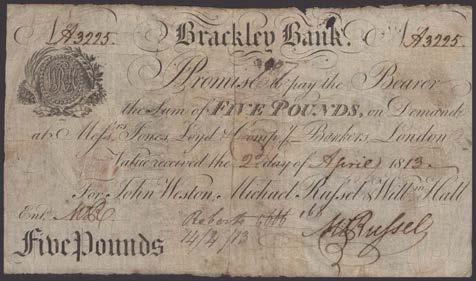 No A3225. Brackley Bank. No A3225.
I Promise to pay the Bearer
the Sum of FIVE POUNDS, on Demand
at Messrs Jones, Loyd & Compy Bankers, London
Value received the 2d day of April 1813.
For John Weston, Michael Russel & Willm Hall
Ent. MR
14/2/13 MRussel
Five Pounds